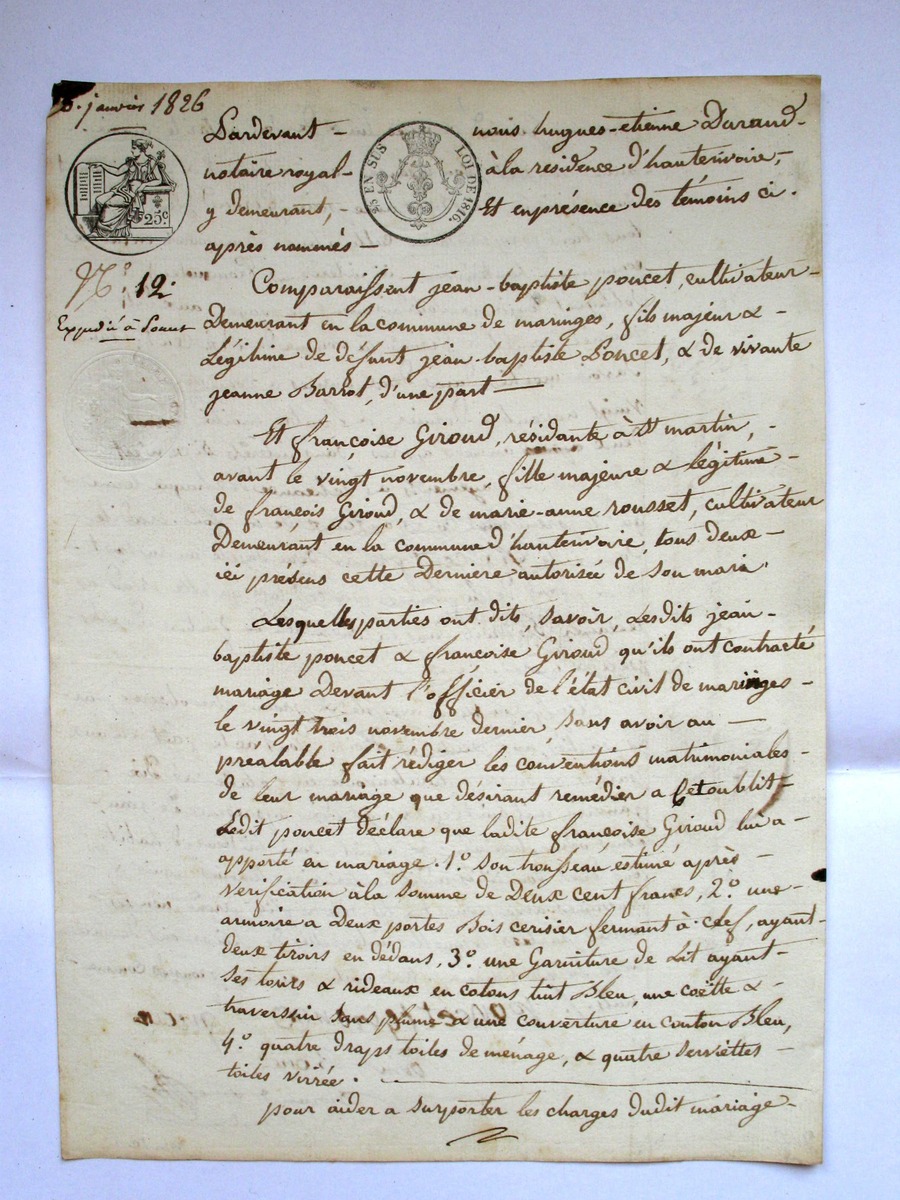 janvier 1826
Pardevant - nous hugues-etienne Durand-
notaire royal- à la residence d'hauterivoire,-
y demeurant, - Et enprésence des témoins ci.
après nommés -
25 EN SUS LOI DE 1816.
25c
No. 12.
Expedié à Poncet
Comparaissent jean-baptiste poncet, cultivateur-
Demeurant en la commune de maringes, fils majeur & -
Légitime de défunt jean-baptiste Poncet, & de vivante
jeanne Barrot, d'une part -
Et françoise Giroud, résidante à St martin, -
avant le vingt novembre, fille majeure & légitime -
de francois Giroud, & de marie-anne rousset, cultivateur
Demeurant en la commune d'hauterivoire, tous deux -
ici présens cette Derniere autorisée de son mari.
Lesquelles parties ont dits, savoir, Lesdits jean-
baptiste poncet & françoise Giroud qu'ils ont contracté
mariage Devant l'officier de l'état civil de maringes -
le vingt trois novembre dernier, sans avoir au -
préalable fait rédiger les conventions matrimoniales -
de leur mariage que désirant remédier a Cet oublit -
Ledit poncet déclare que ladite françoise Giroud lui a -
apporté en mariage. 1o. son trousseau estimé après -
verification à la somme de Deux cent francs, 2o. une -
armoire a Deux portes Bois cerisier fermant à clef, ayant -
deux tiroirs en dédans, 3o. une Garniture de Lit ayant -
ses tours & rideaux en cotons tint Bleu, une coëtte & -
traversin sans plume & une couverture en couton Bleu,
4o. quatre draps toiles de ménage, & quatre serviettes -
toiles virrée.
pour aider a surporter les charges dudit mariage -